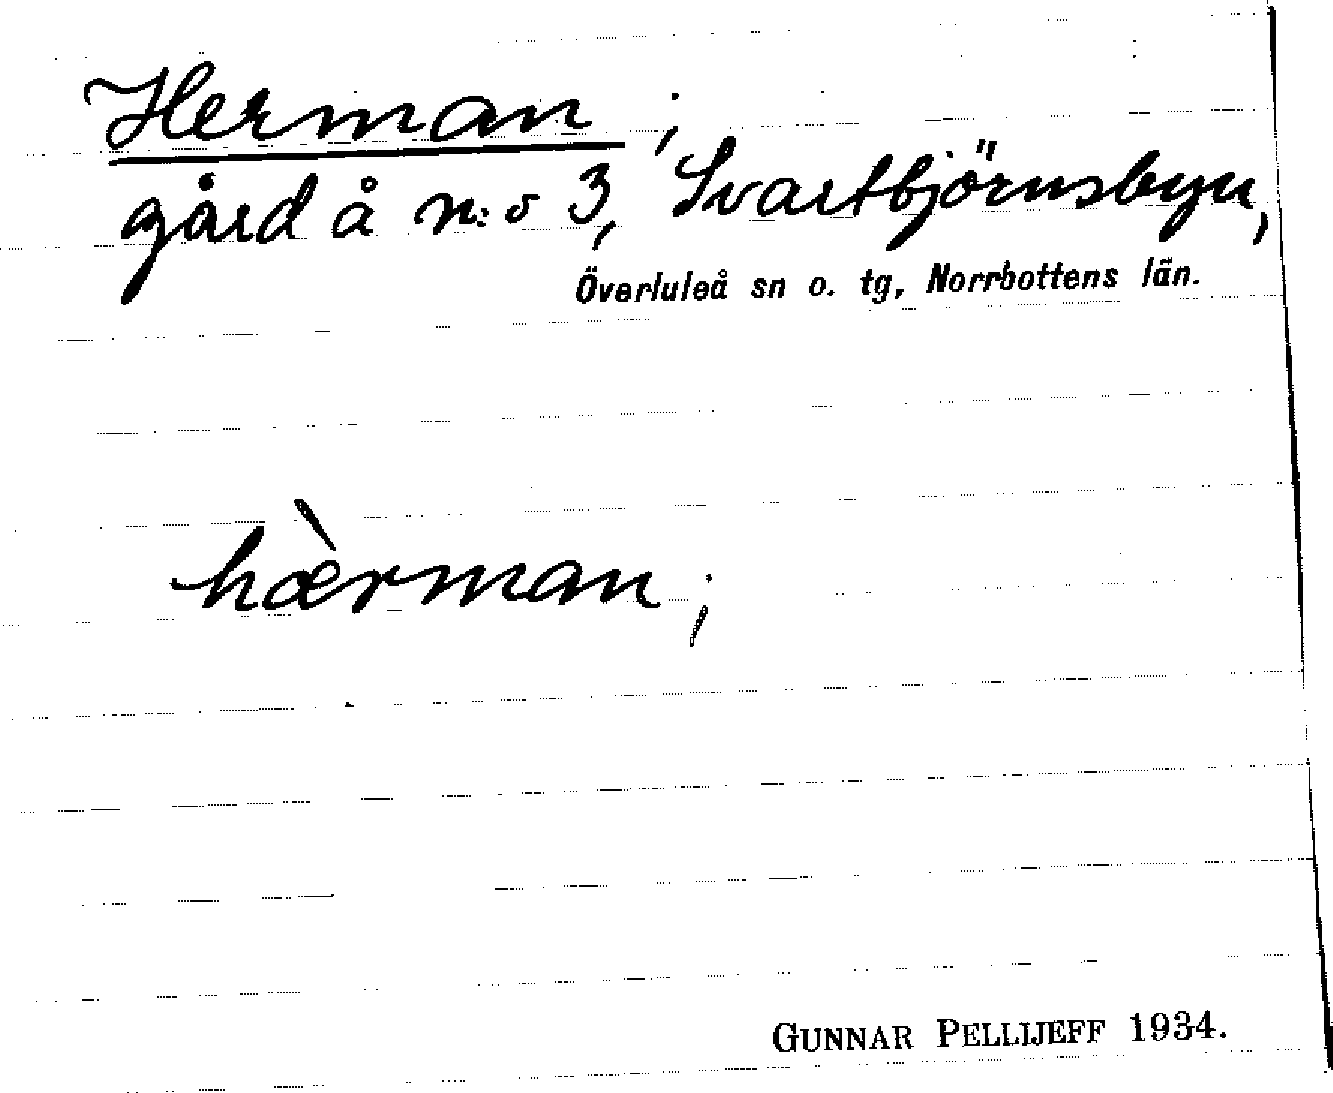 Herman ;
gård å n:o 3, Svartbjörnsbyn,
Överluleå sn o. tg, Norrbottens län.
hæ̀rman ;
GUNNAR PELLIJEFF 1934.